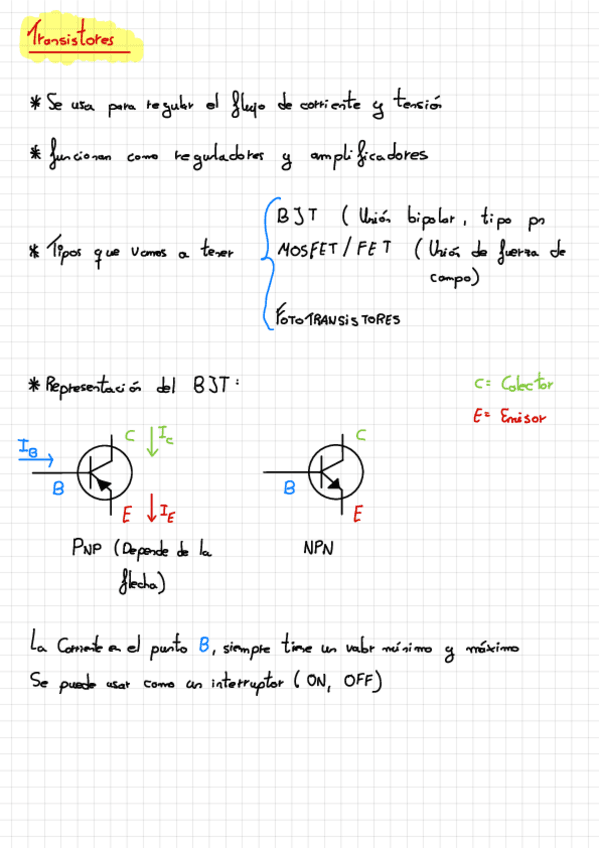 Transistores
* Se usa para regular el flujo de corriente y tensión
* funcionan como reguladores y amplificadores
BJT ( Unión bipolar, tipo pn
* Tipos que vamos a tener
MOSFET/FET ( Unión de fuerza de
campo)
FOTOTRANSISTORES
* Representación del BJT:
C= Colector
E= Emisor
C IC
IB
B
E IE
PNP (Depende de la
flecha)
C
B
E
NPN
La Corriente en el punto B, siempre tiene un valor mínimo y máximo
Se puede usar como un interruptor ( ON, OFF)